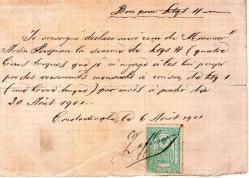 Bon pour Ltqs 4
Je soussigné déclare avoir reçu de Monsieur
la somme de Ltqs 4 (quatre
Livres turques) que je m'engage à les lui payer
par des versements mensuels à raison de Ltq 1
(une Livre turque) par mois à partir du
30 Août 1901.
Constantinople, le 6 Août 1901